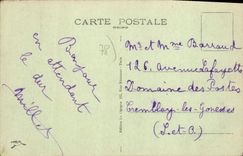 CARTE POSTALE
Bonjour
en attendant
le dur
78
Mr et Mme Barraud
126, Avenue Lafayette
Domaine des Postes
Tremblay-les-Gonesses
(S.et.O.)